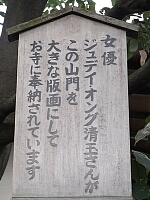 女優
ジュディ・オング清玉さんが
この山門を
大きな版画にして
お寺に奉納されています